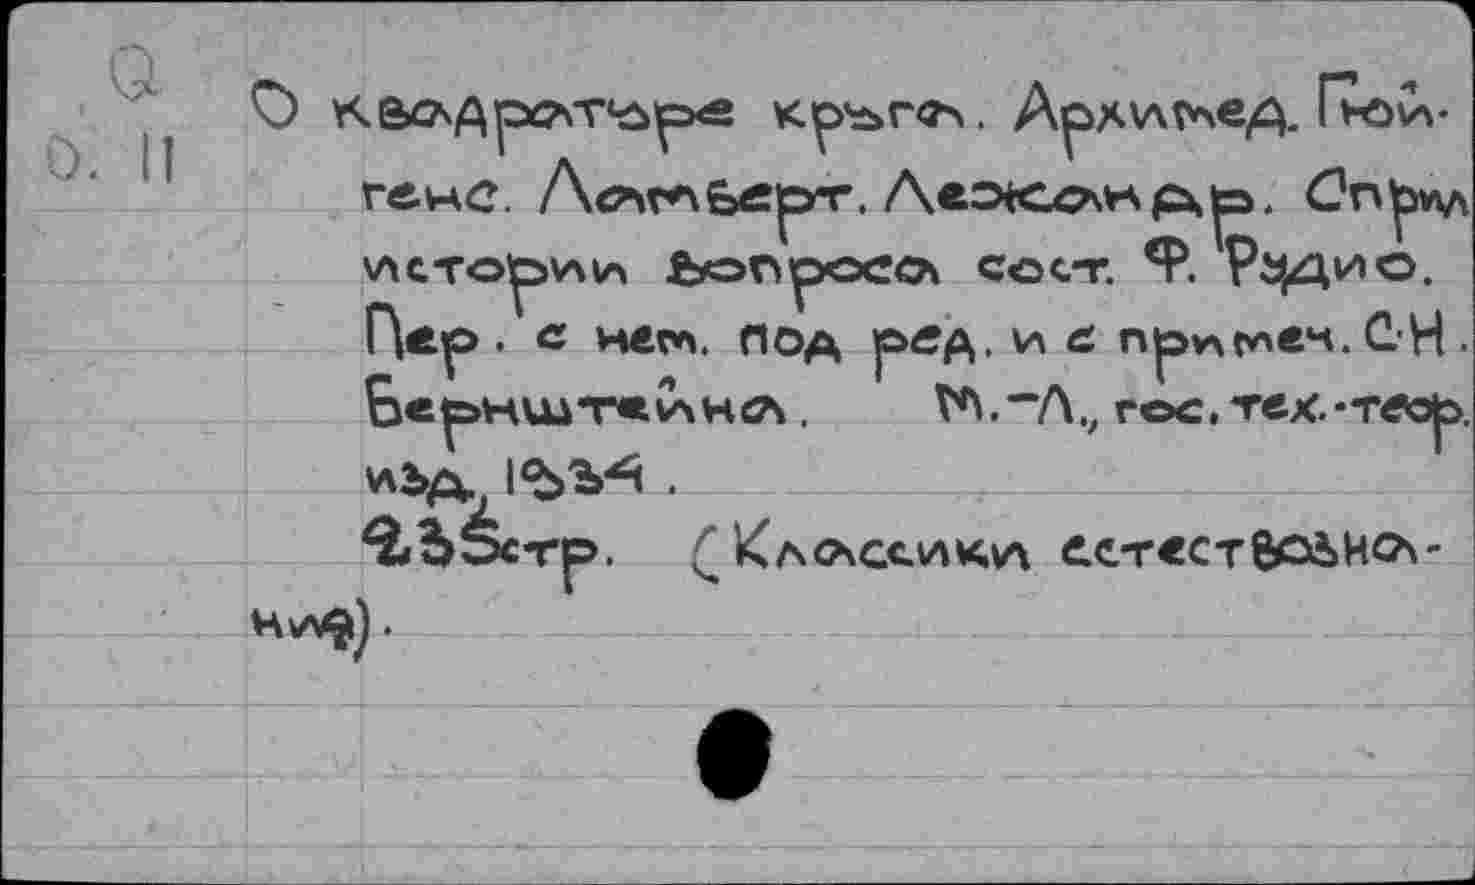 Q
О квадратуре круга. Архимед. Гюй-
О. II
генс. Ламберт. Лежандр. С прил
истории вопроса сост. Ф. Рудио.
Пер. с нем. под ред. и с примеч. С.Н.
Бернштейна. М.-Л., гос. тех.-теор.
изд., 1934.
235стр. (Классики естествозна-
ния).